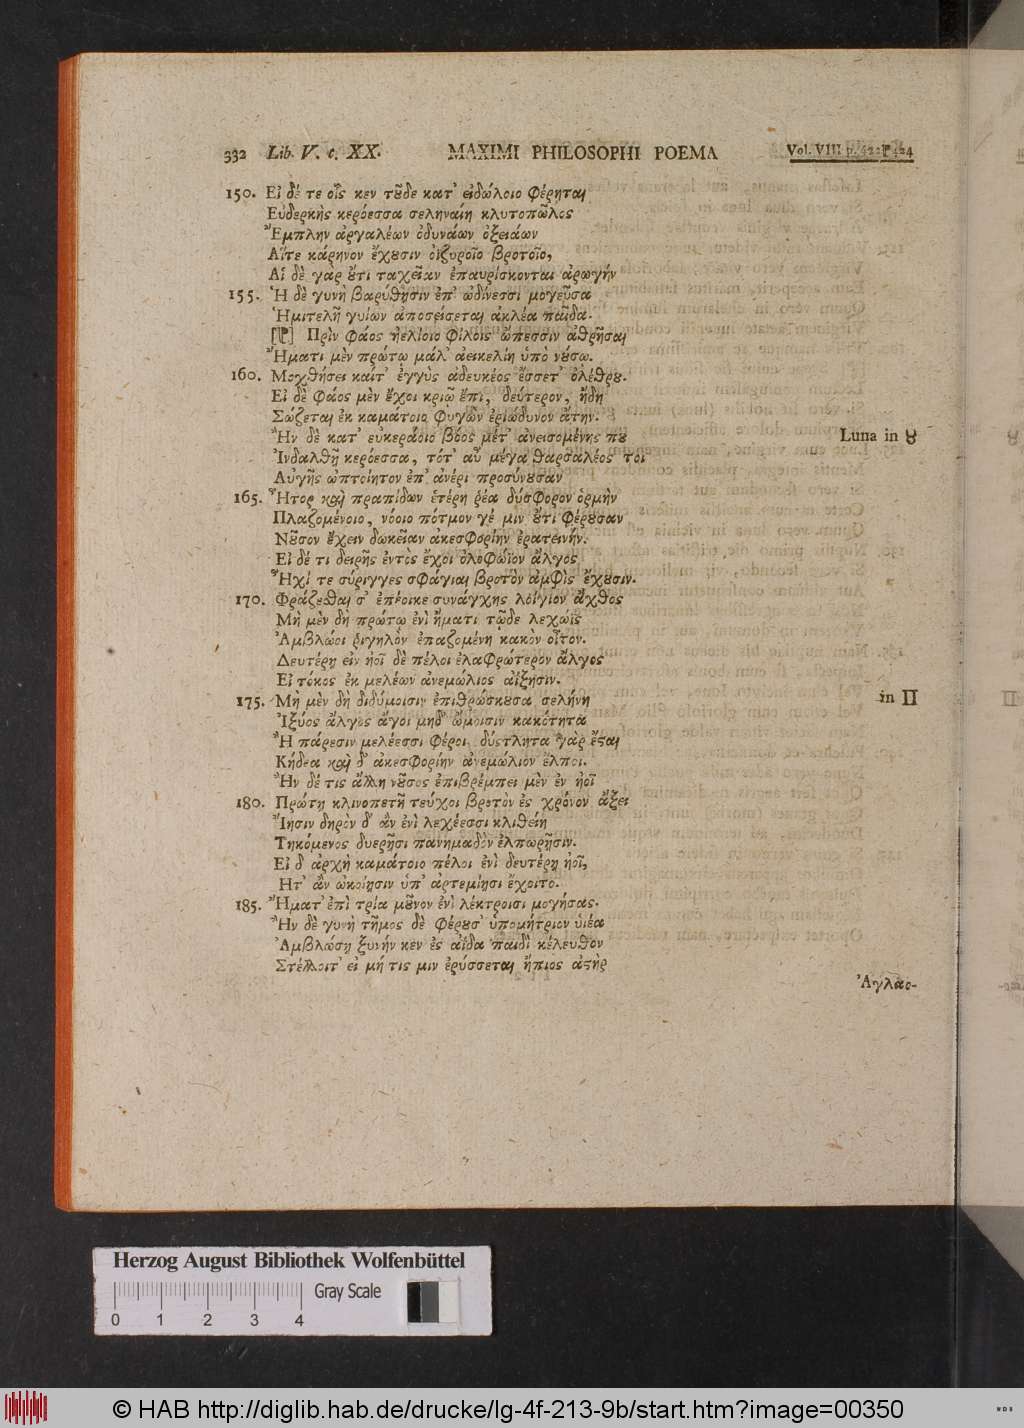 332 Lib. V. c. XX. MAXIMI PHILOSOPHI POEMA Vol. VIII p. 424
150. Εἰ δέ τε οἷς κεν τοῦδε κατ' εἰδώλοιο φέρηται
Εὐδερκὴς κερόεσσα σεληναίη κλυτοπῶλος
Ἔμπλην ἀργαλέων ὀδυνάων ὀξειάων
Αἵτε κάρηνον ἔχουσιν ὀϊζυροῖο βροτοῖο,
Αἱ δὲ γὰρ οὔτι ταχεῖαν ἐπαυρίσκονται ἀρωγήν
155. Ἡ δὲ γυνὴ βαρύθησιν ἐπ' ὠδίνεσσι μογεῦσα
Ἡμιτελῆ γυίων ἀποσείσεται ἀκλέα παῖδα.
Πρὶν φάος ἠελίοιο φίλοις ὤπεσσιν ἀθρῆσαι
Ἤματι μὲν πρώτω μάλ' ἀεικελίη ὑπὸ νούσω.
160. Μοχθήσει καίτ' ἐγγὺς ἀδευκέος ἔσσετ' ὀλέθρου.
Εἰ δὲ φάος μὲν ἔχοι κριῷ ἔπι, δεύτερον, ἤδη
Σώζεται ἐκ καμάτοιο φυγὼν ἐριώδυνον ἄτην.
Ἢν δὲ κατ' εὐκεράοιο βοὸς μέτ' ἀνεισομένης που Luna in ♉
Ἰνδαλθῆ κερόεσσα, τότ' αὖ μέγα θαρσαλέος τοι
Αὐγῆς ὠπτοίητον ἐπ' ἀνέρι προσύνουσαν
165. Ἦτορ καὶ πραπίδων ἑτέρη ῥέα δύσφορον ὁρμὴν
Πλαζομένοιο, νόοιο πότμον γέ μιν οὔτι φέρουσαν
Νοῦσον ἔχειν δωκεῖαν ἀκεσφορίην ἐρατεινήν.
Εἰ δέ τι δειρῆς ἐντὸς ἔχοι ὀλοφώϊον ἄλγος
Ἧχί τε σύριγγες σφάγιαι βροτὸν ἀμφὶς ἔχουσιν.
170. Φράζεσθαι σ' ἐπέοικε συνάγχης λοίγιον ἄχθος
Μὴ μὲν δὴ πρώτω ἐνὶ ἤματι τῷδε λεχώϊς
Ἀμβλώοι ῥιγηλὸν ἐπαζομένη κακὸν οἶτον.
Δευτέρη εἰν ἠοῖ δὲ πέλοι ἐλαφρώτερον ἄλγος
Εἰ τόκος ἐκ μελέων ἀνεμώλιος ἀΐξησιν.
175. Μὴ μὲν δὴ διδύμοισιν ἐπιθρώσκουσα σελήνη in ♊
Ἰξύος ἄλγος ἄγοι μηδ' ὤμοισιν κακότητα
Ἢ πάρεσιν μελέεσσι φέροι, δύστλητα γὰρ ἔσται
Κήδεα καὶ δ' ἀκεσφορίην ἀνεμώλιον ἔλποι.
Ἢν δέ τις ἄλλη νοῦσος ἐπιβρέμπει μὲν ἐν ἠοῖ
180. Πρώτη κλινοπετῆ τεύχοι βροτὸν ἐς χρόνον ἄξει
Ἴησιν δηρὸν δ' ἂν ἐνὶ λεχέεσσι κλιθείη
Τηκόμενος δυερῆσι πανημαδὸν ἐλπωρῆσιν.
Εἰ δ' ἀρχὴ καμάτοιο πέλοι ἐνὶ δευτέρη ἠοῖ,
Ητ' ἂν ὠκοίησιν ὑπ' ἀρτεμίησι ἔχοιτο.
185. Ἤματ' ἐπὶ τρία μοῦνον ἐνὶ λέκτροισι μογήσας.
Ἢν δὲ γυνὴ τῆμος δὲ φέρουσ' ὑπομήτριον υἱέα
Ἀμβλώση ξυνήν κεν ἐς ἀΐδα παιδὶ κέλευθον
Στέλλοιτ' εἰ μή τις μιν ἐρύσσεται ἤπιος ἀστὴρ
Ἀγλαο-
Herzog August Bibliothek Wolfenbüttel
Gray Scale
0 1 2 3 4
© HAB http://diglib.hab.de/drucke/lg-4f-213-9b/start.htm?image=00350